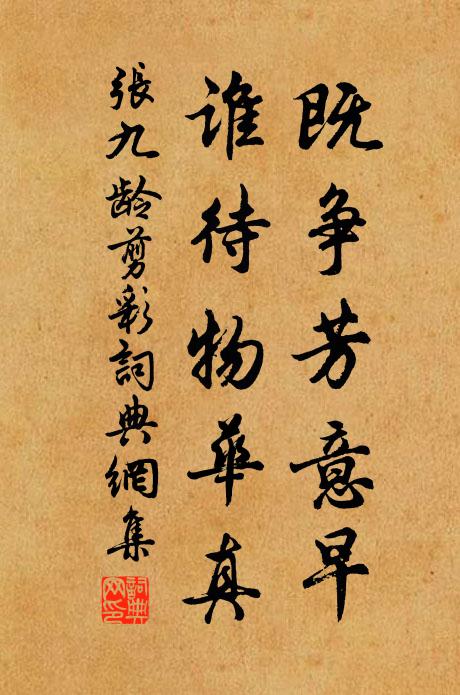 既争芳意早
谁待物华真
張九龄剪彩詞典網集
詞典网印